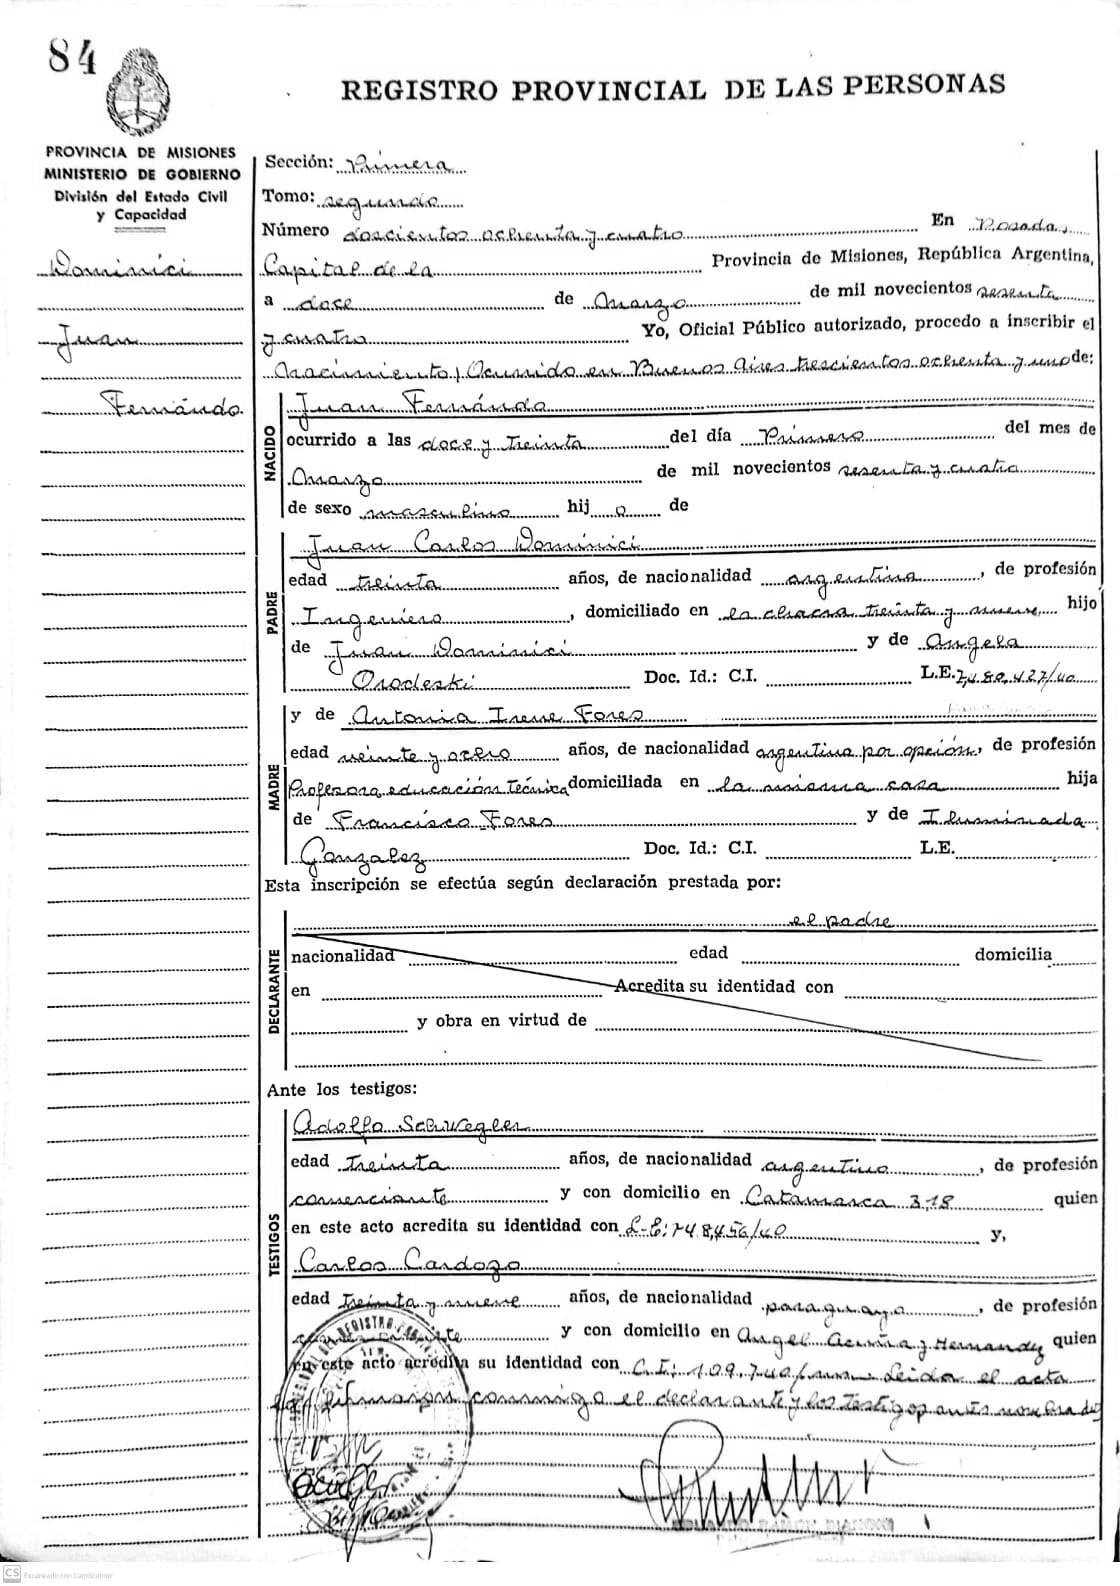 84
REGISTRO PROVINCIAL DE LAS PERSONAS
PROVINCIA DE MISIONES
MINISTERIO DE GOBIERNO
División del Estado Civil
y Capacidad
Dominici
Juan
Fernándo
Sección: Primera
Tomo: segundo
Número doscientos ochenta y cuatro En Posadas,
Capital de la Provincia de Misiones, República Argentina,
a doce de Marzo de mil novecientos sesenta
y cuatro Yo, Oficial Público autorizado, procedo a inscribir el
Nacimiento, Ocurrido en Buenos Aires trescientos ochenta y uno de:
NACIDO
Juan Fernándo
ocurrido a las doce y treinta del día Primero del mes de
Marzo de mil novecientos sesenta y cuatro
de sexo masculino hij o de
PADRE
Juan Carlos Dominici
edad treinta años, de nacionalidad argentina, de profesión
Ingeniero, domiciliado en la chacra treinta y nueve hijo
de Juan Dominici y de Angela
Doc. Id.: C.I. L.E. 7,480,427/40
MADRE
y de Antonia Irene Fores
edad veinte y ocho años, de nacionalidad argentina por opción, de profesión
Profesora educación técnica domiciliada en la misma casa hija
de Francisco Fores y de Iluminada
Gonzalez Doc. Id.: C.I. L.E.
Esta inscripción se efectúa según declaración prestada por:
DECLARANTE
el padre
nacionalidad edad domicilia
en Acredita su identidad con
y obra en virtud de
Ante los testigos:
TESTIGOS
Adolfo Schwegler
edad treinta años, de nacionalidad argentino, de profesión
comerciante y con domicilio en Catamarca 318 quien
en este acto acredita su identidad con L-E: y,
Carlos Cardozo
edad treinta y nueve años, de nacionalidad paraguayo, de profesión
y con domicilio en Angel Acuña y Hernandez quien
en este acto acredita su identidad con C.I: 109.740/ Leida el acta
firman conmigo el declarante y los testigos
CS Escaneado con CamScanner